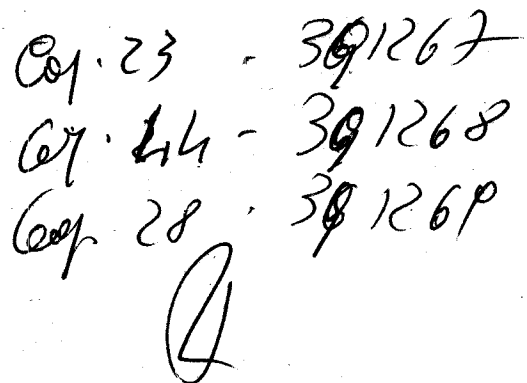 Cop. 23 - 391267
Cop. 44 - 391268
Cop. 28 - 391269